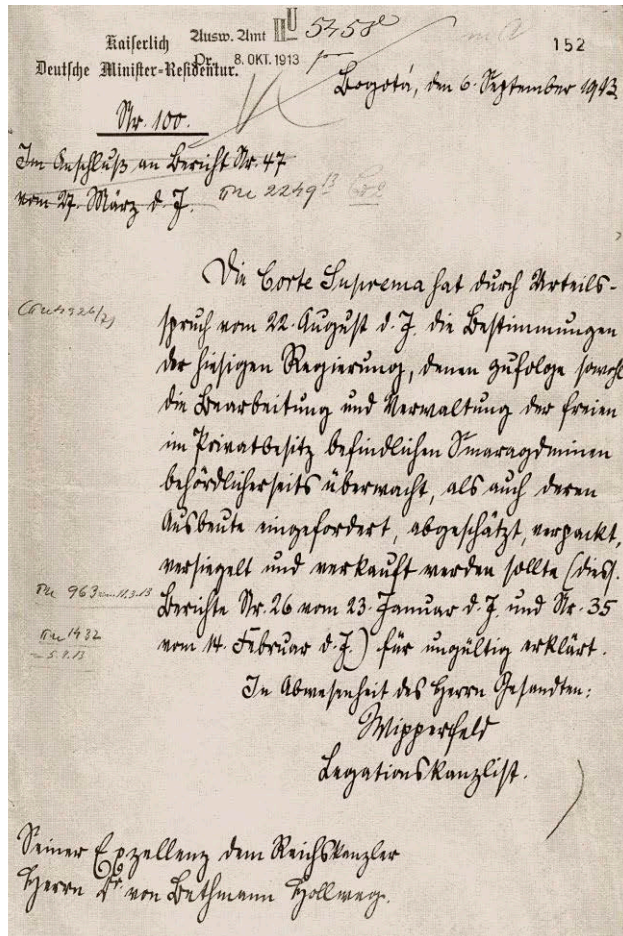 Kaiserlich
Deutsche Minister-Residentur.
Ausw. Amt II U 5458
Pr. 8. OKT. 1913
152
Bogotá, den 6. September 1913.
Nr. 100.
Im Anschluß an Bericht Nr. 47
vom 27. März d. J.
2249 13
Die Corte Suprema hat durch Urteils-
spruch vom 22. August d. J. die Bestimmungen
der hiesigen Regierung, denen zufolge sowohl
die Bearbeitung und Verwaltung der freien
im Privatbesitz befindlichen Smaragdminen
behördlicherseits überwacht, als auch deren
Ausbeute eingefordert, abgeschätzt, verpackt,
versiegelt und verkauft werden sollte (diess.
963 vom 11.3.13
Berichte Nr. 26 vom 23. Januar d. J. und Nr. 35
1432
vom 14. Februar d. J.) für ungültig erklärt.
In Abwesenheit des Herrn Gesandten:
Wipperfeld
Legationskanzlist.
Seiner Exzellenz dem Reichskanzler
Herrn Dr. von Bethmann Hollweg.